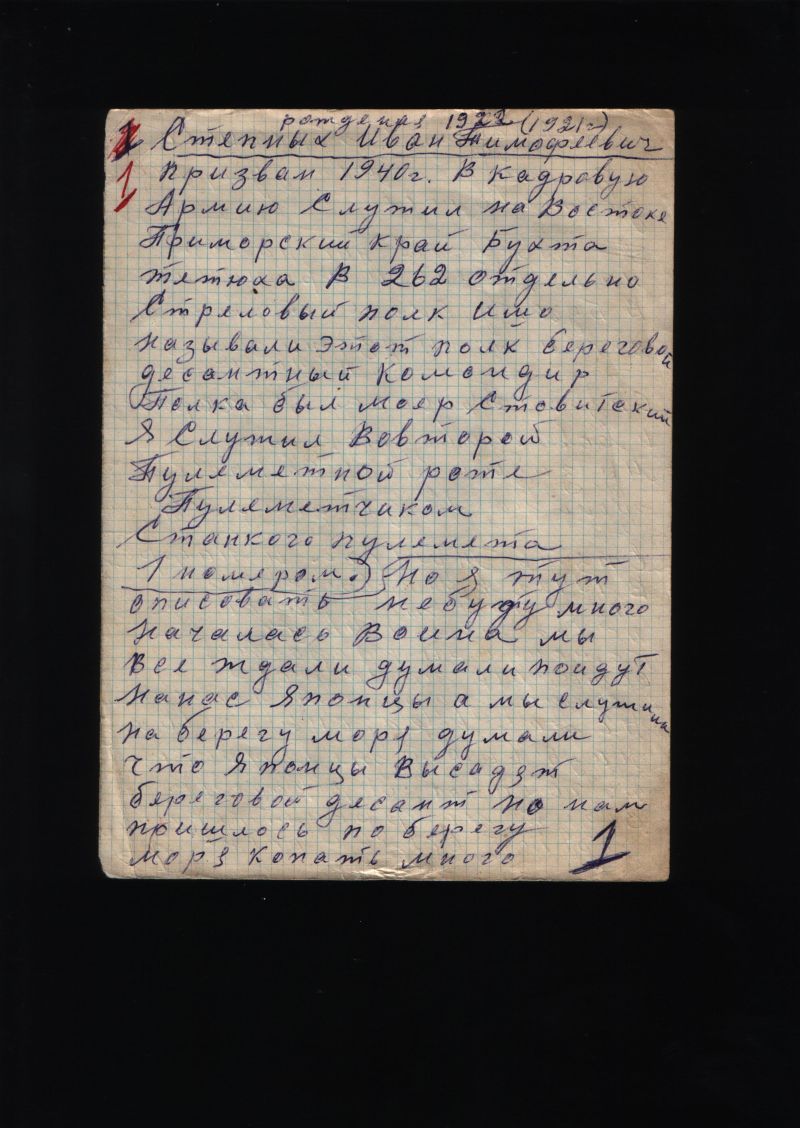 рождения 1922 (1921г)
1 Степных Иван Тимофеевич
1 призван 1940г. В кадровую
Армию Служил на Востоке
Приморский край Бухта
тетюха В 262 отдельно
Стреловый полк имо
называли этот полк береговой
десантный Командир
Полка был моер Ставитский
Я Служил Вовторой
Пулеметной роте
Пулеметчиком
Станкого пулемета
1 номером.) Но я тут
описовать небуду много
Началась Воина мы
Все ждали думали поидут
Нанас Японцы а мы служили
на берегу моря думали
что Японцы Высадят
береговой десант но нам
пришлось по берегу
моря копать много
1